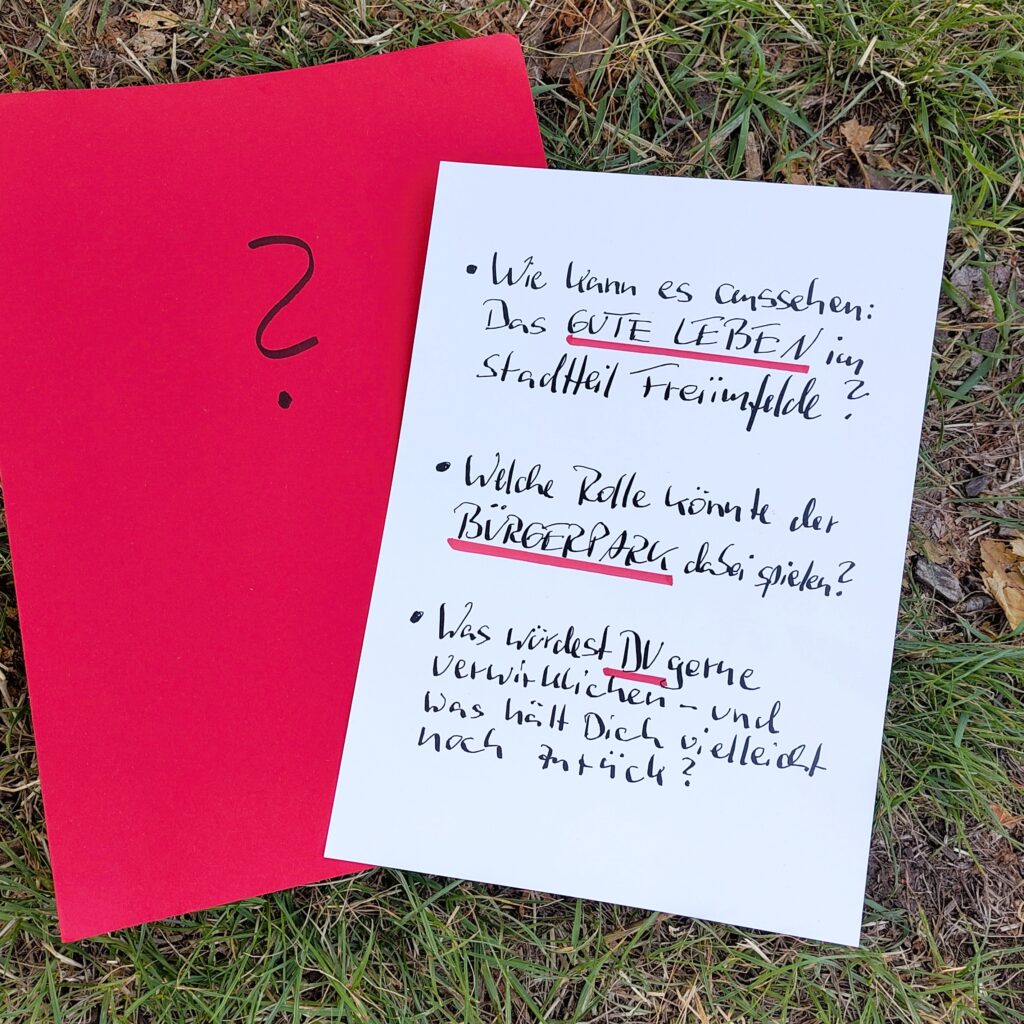 ?
• Wie kann es aussehen:
Das GUTE LEBEN im
Stadtteil Freiimfelde?
• Welche Rolle könnte der
BÜRGERPARK dabei spielen?
• Was würdest DU gerne
verwirklichen – und
was hält Dich vielleicht
noch zurück?